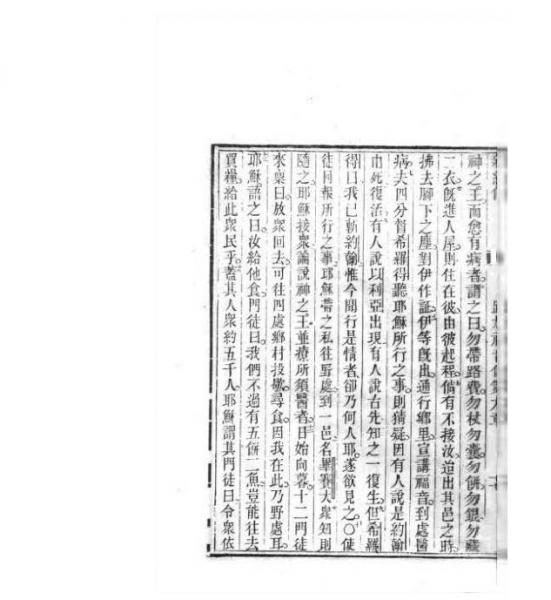 神之王而愈有病者謂之曰勿帶路費勿杖勿囊勿餅勿銀勿
二衣旣進人屋則住在彼由彼起程倘有不接汝迨出其邑之時
拂去脚下之塵對伊作証伊等旣出通行鄕里宣講福音到處醫
病夫四分督希羅得聽耶穌所行之事則猜疑因有人說是約翰
由死復活有人說以利亞出現有人說古先知之一復生但希羅
得曰我已斬約翰惟今聞行是情者卻乃何人耶遂欲見之〇使
徒回報所行之事耶穌帶之私往野處到一邑名畢賽大衆知則
隨之耶穌接衆論說神之王並療所須醫者日始向暮十二門徒
來稟曰放衆回去可往四處鄕村投歇尋食因我在此乃野處耳
耶穌語之曰汝給他食門徒曰我們不過有五餅二魚豈能往去
買糧給此衆民乎蓋其人衆約五千人耶穌謂其門徒曰令衆依